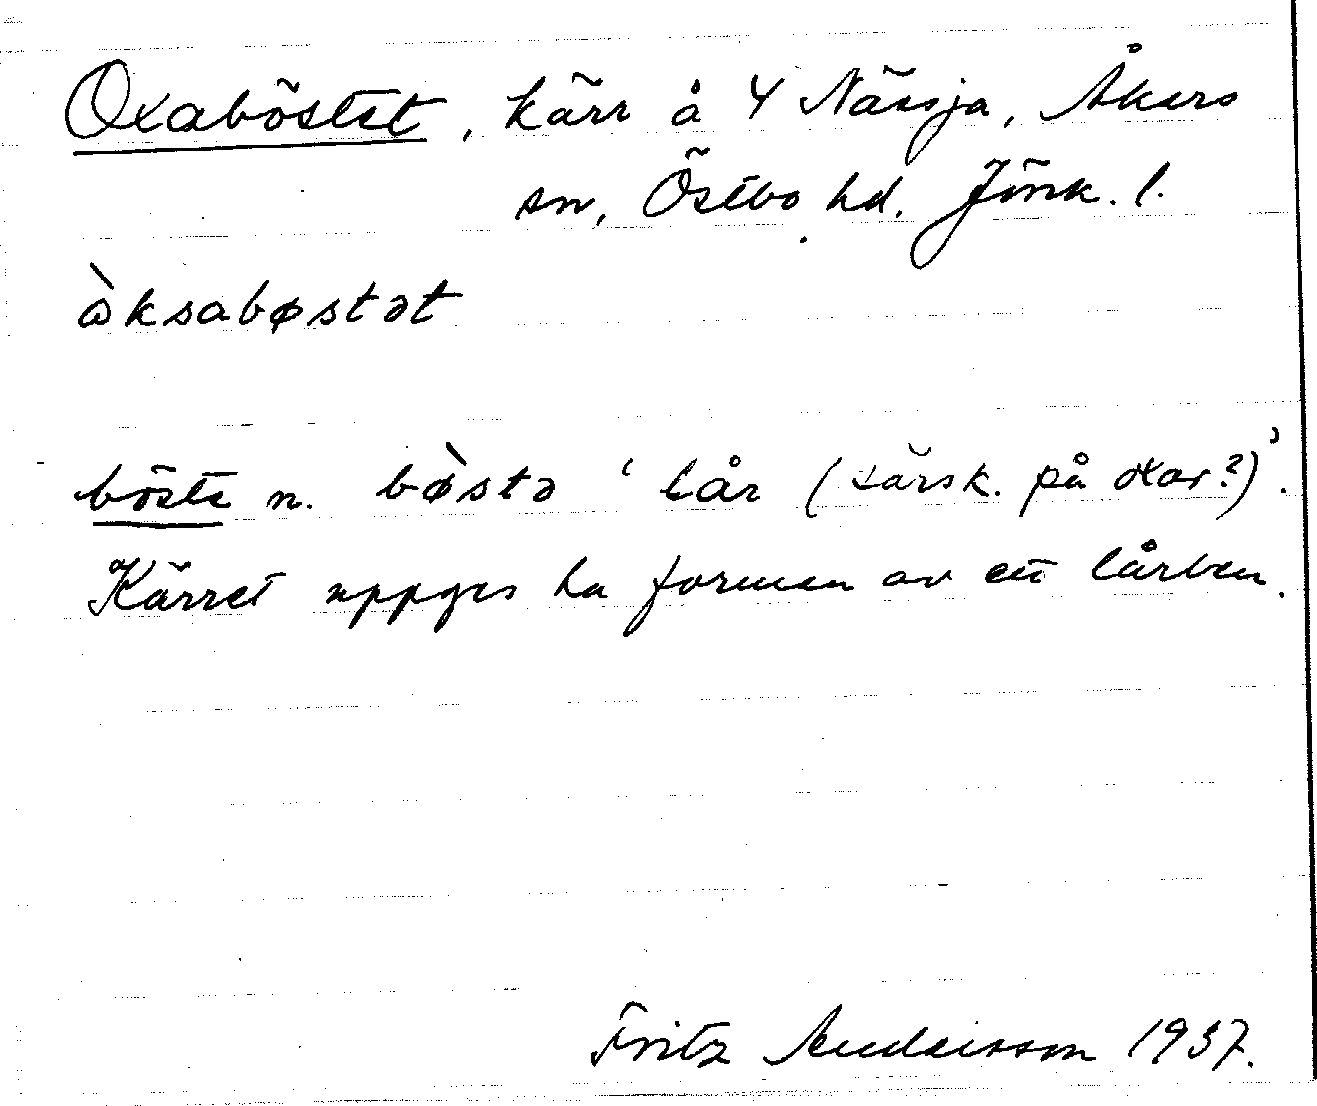 Oxaböstet, kärr å 4 Nässja, Åkers
sn, Östbo hd. Jönk. l.
ɷ̀ksabøstət
böste n. bø̀stə ‘lår (särsk. på oxar?)’.
Kärret uppges ha formen av ett lårben.
Fritz Andersson 1937.